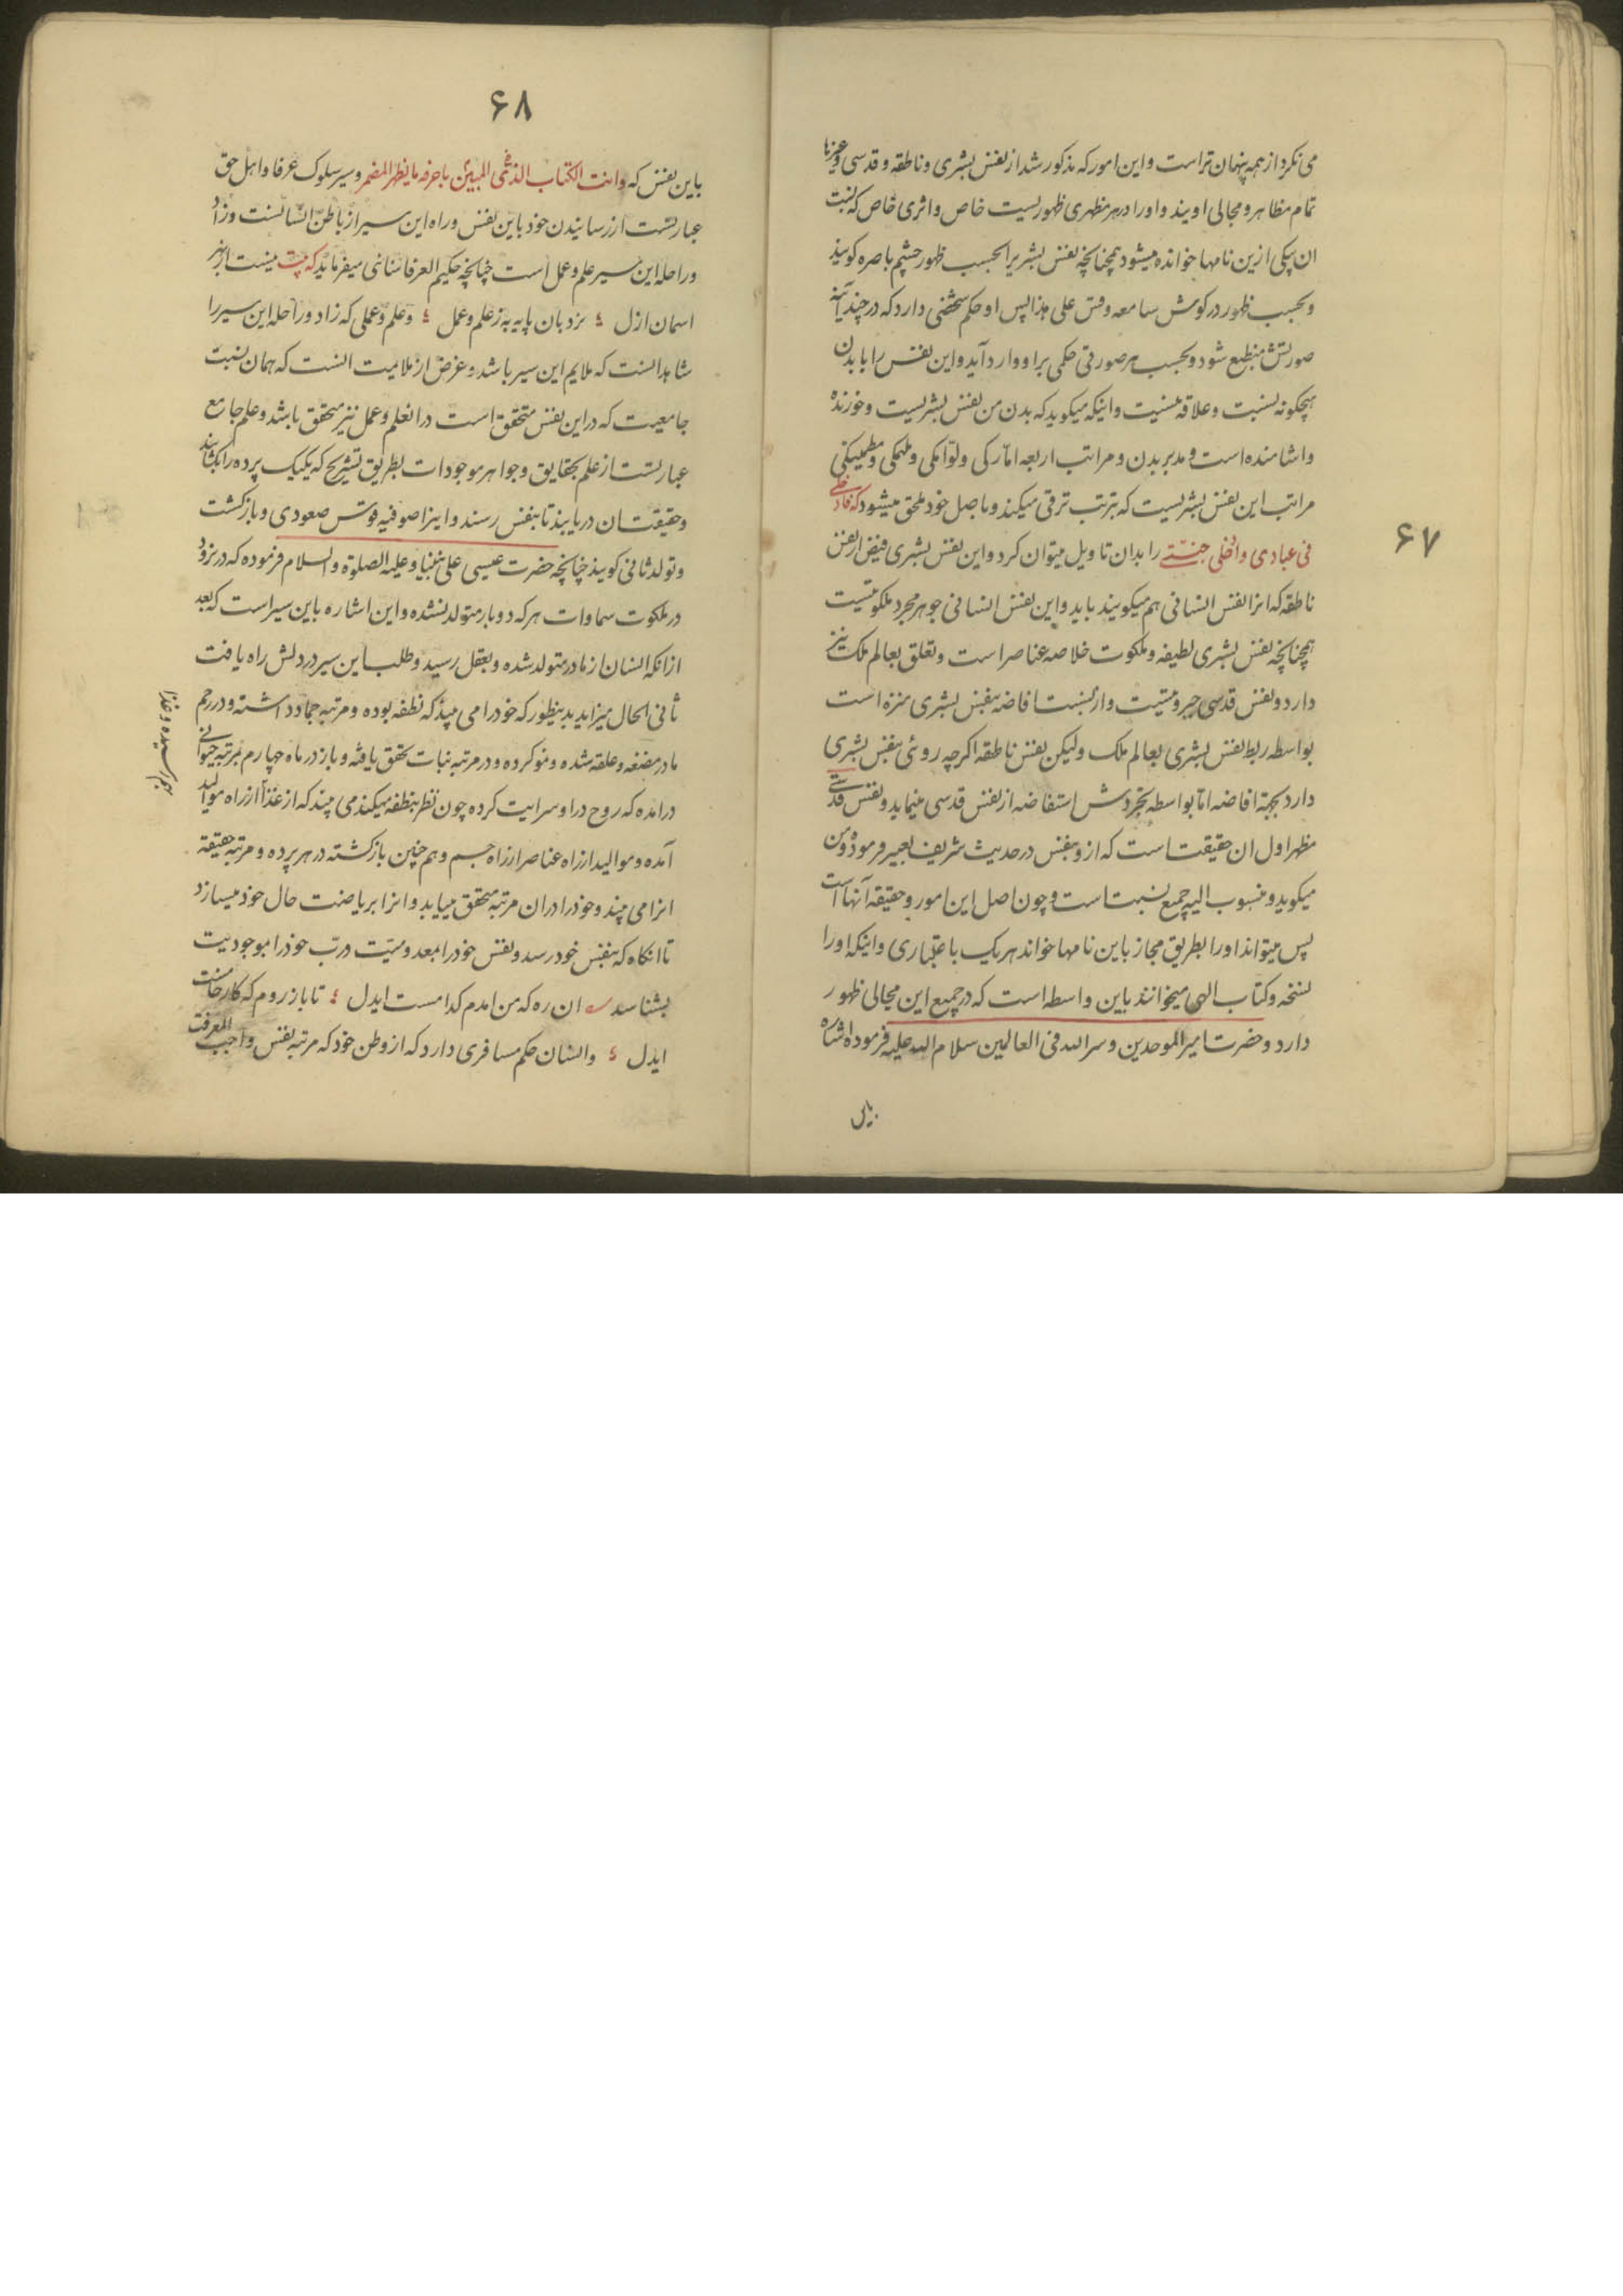 ۶۷
می نگرد از همه پنهان تر است و این امور که مذکور شد از نفس بشری و ناطقه و قدسی و غیرها
تمام مظاهر و مجالی اویند و او را در هر مظهری ظهوریست خاص و اثری خاص که نسبت
ان بیکی ازین نامها خوانده میشود همچنانچه نفس بشریرا بحسب ظهور چشم باصره گویند
و بحسب ظهور در گوش سامعه و قس علی هذا پس او حکم شخصی دارد که در چند آینه
صورتش منطبع شود و بحسب هر صورتی حکمی برا و وارد آید و این نفس را با بدن
هیچگونه نسبت و علاقه نیست و اینکه میگوید که بدن من نفس بشریست و خورنده
و اشامنده است و مدبر بدن و مراتب اربعه امارکی و لوامکی و ملهمکی و مطمینکی
مراتب این نفس بشریست که بترتب ترقی میکند و باصل خود ملحق میشود که فادخلی
فی عبادی و ادخلی جنتی را بدان تاویل میتوان کرد و این نفس بشری فیض از نفس
ناطقه که انرا نفس انسانی هم میگویند یابد و این نفس انسانی جوهر مجرد ملکوتیست
همچنانچه نفس بشری لطیفه و ملکوت خلاصه عناصر است و تعلق بعالم ملک نیز
دارد و نفس قدسی جبروتیست و از نسبت افاضه بنفس بشری منزه است
بواسطه ربط نفس بشری بعالم ملک ولیکن نفس ناطقه اگرچه روئی بنفس بشری
دارد بجهة افاضه اما بواسطه تجردش استفاضه از نفس قدسی مینماید و نفس قدسی
مظهر اول ان حقیقت است که از و بنفس در حدیث شریف تعبیر فرموده و من
میگوید و منسوب الیه جمیع نسبت است و چون اصل این امور و حقیقه آنها است
پس میتواند او را بطریق مجاز باین نامها خواند هر یک باعتباری و اینکه او را
نسخه و کتاب الهی میخوانند باین واسطه است که در جمیع این مجالی ظهور
دارد و حضرت امیر الموحدین و سر الله فی العالمین سلام الله علیه فرموده اشاه
۶۸
باین نفس که وانت الکتاب الذی المبین باحرفه ما یظهر المضمر و سیر سلوک عرفا و اهل حق
عبارتست از رسانیدن خود باین نفس و راه این سیر از باطن انسانست و زاد
و راحله این سیر علم و عمل است چنانچه حکیم العرفا سنائی میفرماید که نیست از بهر
اسمان ازل نردبان پایه به ز علم و عمل و علم و عملی که زاد و راحله این سیر را
شاید انست که ملایم این سیر باشد و غرض از ملایمت انست که همان نسبت
جامعیت که در این نفس متحقق است در انعلم و عمل نیز متحقق باشد و علم جامع
عبارتست از علم بحقایق و جواهر موجودات بطریق تشریح که یکیک پرده را بگشایند
و حقیقت ان دریابند تا بنفس رسند و اینرا صوفیه قوس صعودی و بازگشت
و تولد ثانی گویند چنانچه حضرت عیسی علی نبینا و علیه الصلوة والسلام فرموده که در نرود
در ملکوت سماوات هر که دو بار متولد نشده و این اشاره باین سیر است که بعد
ازانکه انسان از مادر متولد شده و بعقل رسید و طلب این سیر در دلش راه یافت
ثانی الحال میزاید بدینطور که خود را می بیند که نطفه بوده و مرتبه جماد داشته و در رحم
مادر مضغه و علقه شده و نمو کرده و در مرتبه نبات تحقق یافته و باز در ماه چهارم بمرتبه حیوانی
درامده که روح در او سرایت کرده چون نظر بنطفه میکند می بیند که از غذا از راه موالید
آمده و موالید از راه عناصر از راه جسم و هم چنین بازگشته در هر پرده و مرتبه حقیقة
انرا می بیند و خود را در ان مرتبه متحقق میابد و انرا بریاضت حال خود میسازد
تا انگاه که بنفس خود رسد و نفس خود را بمعدومیت و رب خود را بموجودیت
بشناسد ان ره که من امدم کدامست ایدل تا باز روم که کار خامست
ایدل وانسان حکم مسافری دارد که از وطن خود که مرتبه نفس واجب المعرفت